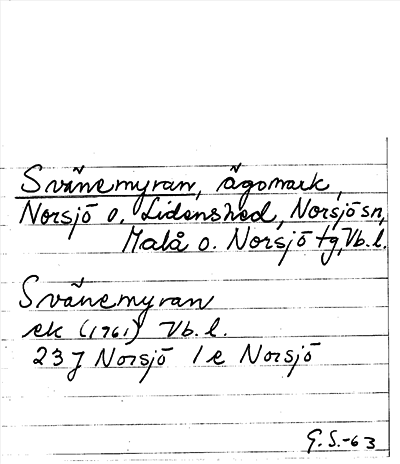 Svänemyran, ägomark,
Norsjö o. Lidenshed, Norsjö sn,
Malå o. Norsjö tg, Vb. l.
Svänemyran
ek (1961) Vb. l.
23 J Norsjö 1 e Norsjö
G. S.-63